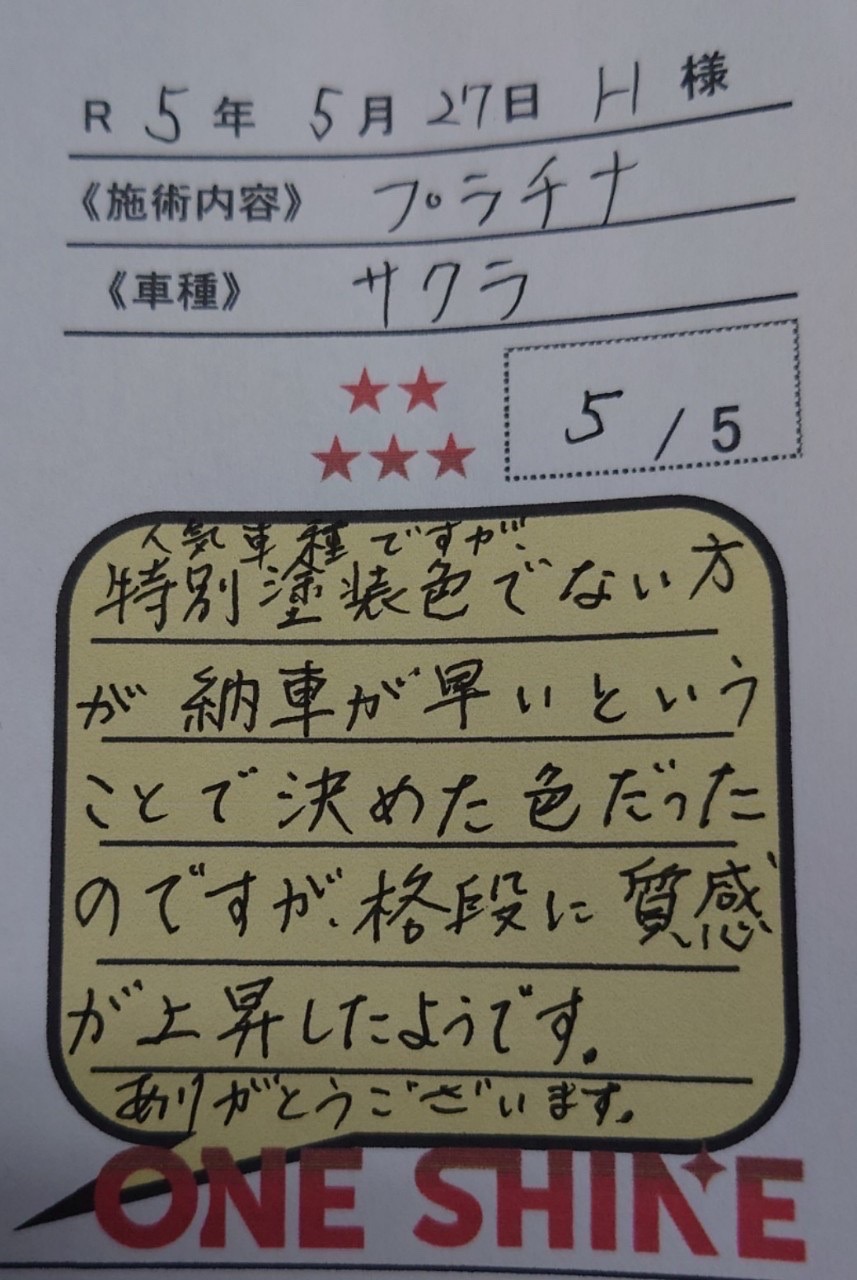 R 5年 5月 27日 H 様
《施術内容》 プラチナ
《車種》 サクラ
★★
★★★
5 / 5
人気車種ですが、
特別塗装色でない方
が納車が早いという
ことで決めた色だった
のですが、格段に質感
が上昇したようです。
ありがとうございます。
ONE SHINE